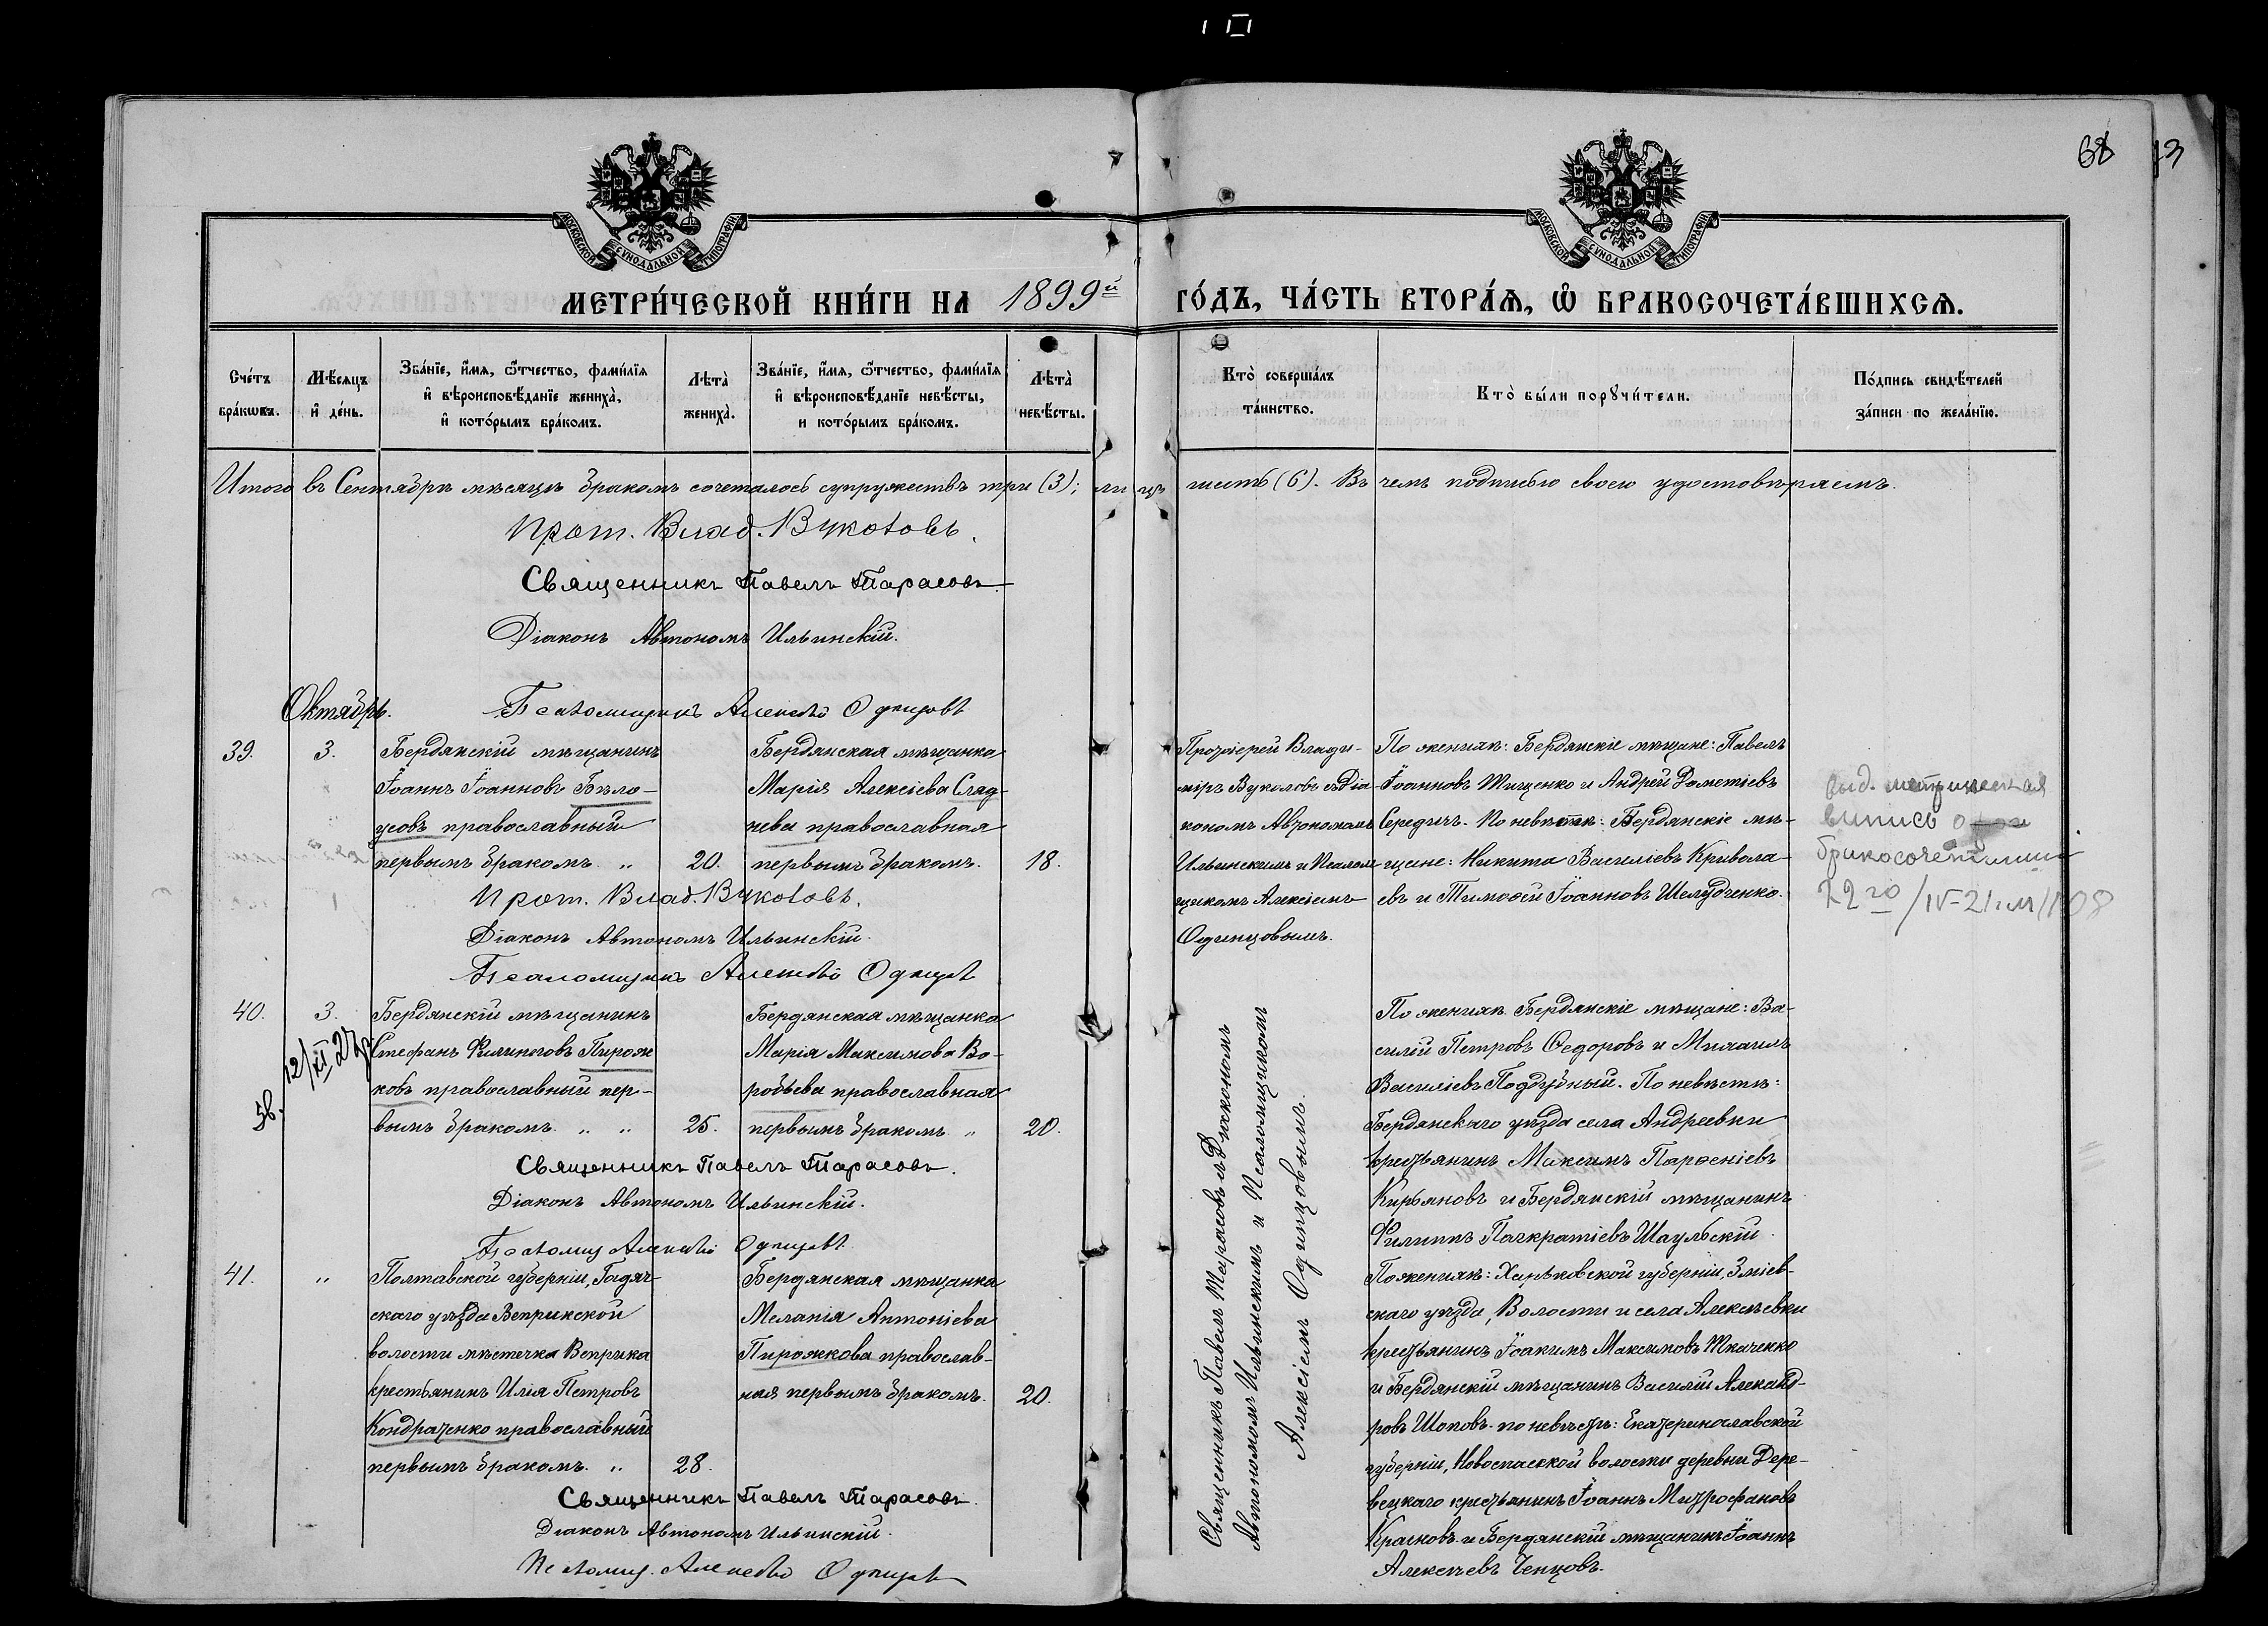 68 73
МОСКОВСКОЙ СѴНОДАЛЬНОЙ ТИПОГРАФІИ
МОСКОВСКОЙ СѴНОДАЛЬНОЙ ТИПОГРАФІИ
МЕТРИ́ЧЕСКОЙ КНИ́ГИ НА 1899й ГО́ДЪ, ЧА́СТЬ ВТОРА́Ѧ, Ѡ БРАКОСОЧЕТА́ВШИХСѦ.
Сче́тъ бра́кѡвъ.
Мѣ́сяцъ и҆ де́нь.
Зва́нїе, и҆́мѧ, ѻ҆́тчество, фами́лїѧ и҆ вѣроисповѣ́данїе жениха̀, и҆ кото́рымъ бра́комъ.
Лѣта̀ жениха̀.
Зва́нїе, и҆́мѧ, ѻ҆́тчество, фами́лїѧ и҆ вѣроисповѣ́данїе невѣ́сты, и кото́рымъ бра́комъ.
Лѣта̀ невѣ́сты.
Кто̀ соверша́лъ та́инство.
Кто̀ бы́ли порꙋчи́тели.
По́дпись свидѣ́телей за́писи по жела́нію.
Итого въ Сентябрѣ мѣсяцѣ бракомъ сочеталось супружествъ три (3); лицъ шесть (6). Въ чемъ подписью своею удостовѣряемъ.
Прот. Влад. Вуколовъ.
Священникъ Павелъ Тарасовъ.
Діаконъ Автономъ Ильинскій.
Псаломщикъ Алексѣй Одинцовъ
Октябрь.
39.
3.
Бердянскій мѣщанинъ
Іоаннъ Іоанновъ Бѣло-
усовъ православный
первымъ бракомъ. „
20.
Бердянская мѣщанка
Марія Алексіева Слад-
нева православная
первымъ бракомъ.
18.
Протоіерей Влади-
міръ Вуколовъ съ Діа-
кономъ Автономомъ
Ильинскимъ и Псалом-
щикомъ Алексіемъ
Одинцовымъ.
По женихѣ: Бердянскіе мѣщане: Павелъ
Іоанновъ Тищенко и Андрей Дометіевъ
Середичъ. По невѣстѣ: Бердянскіе мѣ-
щане: Никита Василіевъ Кривола-
евъ и Тимоѳей Іоанновъ Шелудченко.
выд. метрическая
выпись о
бракосочетании
22го/IV-21
Прот. Влад. Вуколовъ.
Діаконъ Автономъ Ильинскій.
Псаломщикъ Алексѣй Одинцовъ
40.
3.
12/XI 27
Бердянскій мѣщанинъ
Стефанъ Филипповъ Пирож
ковъ православный пер-
вымъ бракомъ. „ „
25.
Бердянская мѣщанка
Марія Максимова Во-
робьева православная
первымъ бракомъ „
20.
Священникъ Павелъ Тарасовъ съ Діакономъ
Автономомъ Ильинскимъ и Псаломщикомъ
Алексіемъ Одинцовымъ.
По женихѣ Бердянскіе мѣщане: Ва-
силій Петровъ Ѳедоровъ и Михаилъ
Василіевъ Поддубный. По невѣстѣ:
Бердянскаго уѣзда села Андреевки
крестьянинъ Максимъ Парѳеніевъ
Кирьяновъ и Бердянскій мѣщанинъ
Филиппъ Панкратіевъ Шаульскій.
Священникъ Павелъ Тарасовъ.
Діаконъ Автономъ Ильинскій.
Псаломщ Алексѣй Одинцовъ.
41.
„
Полтавской губерніи, Гадяч-
скаго уѣзда Веприкской
волости мѣстечка Веприка
крестьянинъ Илія Петровъ
Кондратенко православный
первымъ бракомъ. „
28.
Бердянская мѣщанка
Меланія Антоніева
Пирожкова православ-
ная первымъ бракомъ.
20.
По женихѣ: Харьковской губерніи, Зміев-
скаго уѣзда, Волости и села Алексѣевки
крестьянинъ Іоакимъ Максимовъ Ткаченко
и Бердянскій мѣщанинъ Василій Александ-
ровъ Шоповъ. по невѣстѣ: Екатеринославской
губерніи, Новоспасской волости деревни Дере-
вецкаго крестьянинъ Іоаннъ Митрофановъ
Красковъ и Бердянскій мѣщанинъ Іоаннъ
Алексѣевъ Ченцовъ.
Священникъ Павелъ Тарасовъ.
Діаконъ Автономъ Ильинскій.
Псаломщ. Алексѣй Одинцовъ